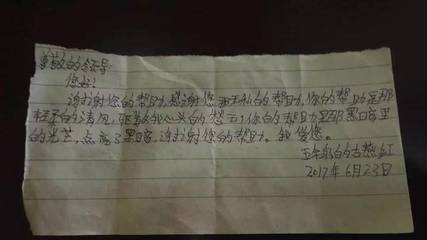 尊敬的领导:
您好!
谢谢您的帮助,感谢您那无私的帮助,你的帮助是那
轻柔的清风,驱散我心头的愁云;你的帮助是那黑暗里
的光芒,点亮了黑暗,谢谢您的帮助。我爱您。
五年级的古
2017年6月23日